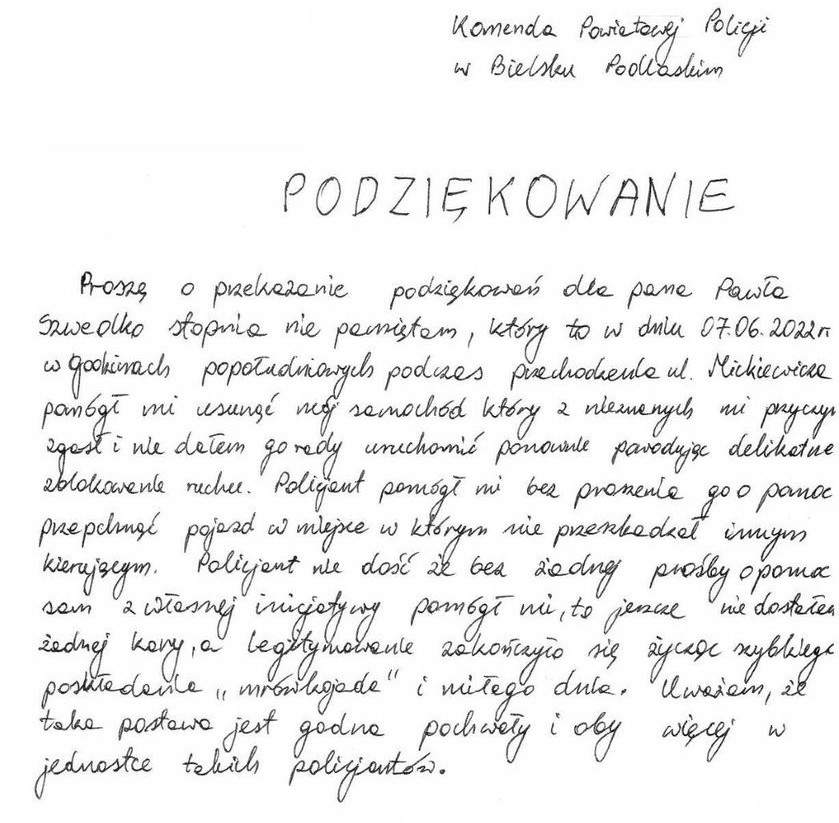 Komenda Powiatowej Policji
w Bielsku Podlaskim
PODZIĘKOWANIE
Proszę o przekazanie podziękowań dla pana Pawła
Szwedko stopnia nie pamiętam, który to w dniu 07.06.2022r
w godzinach popołudniowych podczas przechodzenia ul. Mickiewicza
pomógł mi usunąć mój samochód który z nieznanych mi przyczyn
zgasł i nie dałem go rady uruchomić ponownie powodując delikatne
zblokowanie ruchu. Policjant pomógł mi bez proszenia go o pomoc
przepchnąć pojazd w miejsce w którym nie przeszkadzał innym
kierującym. Policjant nie dość że bez żadnej prośby o pomoc
sam z własnej inicjatywy pomógł mi, to jeszcze nie dostałem
żadnej kary, a legitymowanie zakończyło się życząc szybkiego
poskładania „mrówkojada" i miłego dnia. Uważam, że
taka postawa jest godna pochwały i oby więcej w
jednostce takich policjantów.